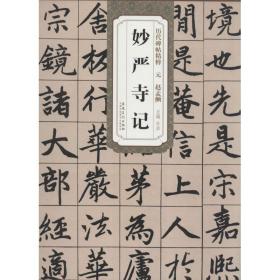 境也先是宋嘉熙
間是菴信上人於
茆為廬
舍板行華嚴法華
宗鏡諸大部經適
历代碑帖精粹 元 赵孟頫
妙严寺记